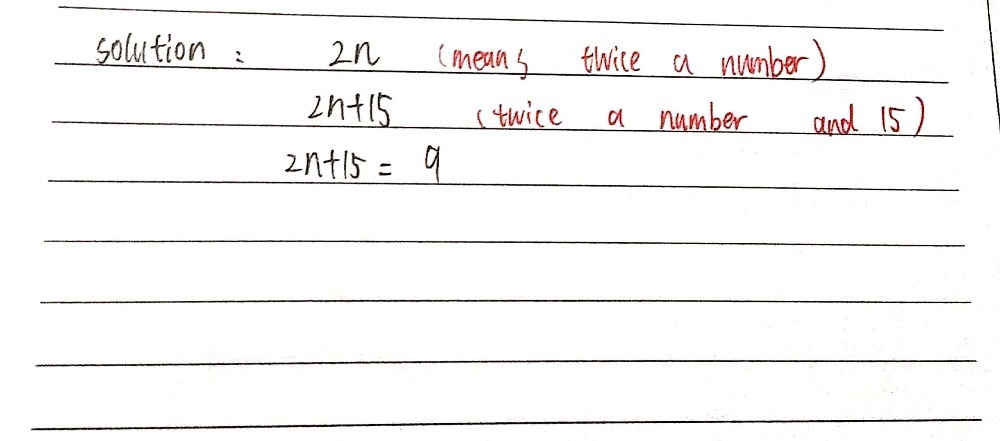 solution : 2n (means twice a number)
2n+15 (twice a number and 15)
2n+15 = 9